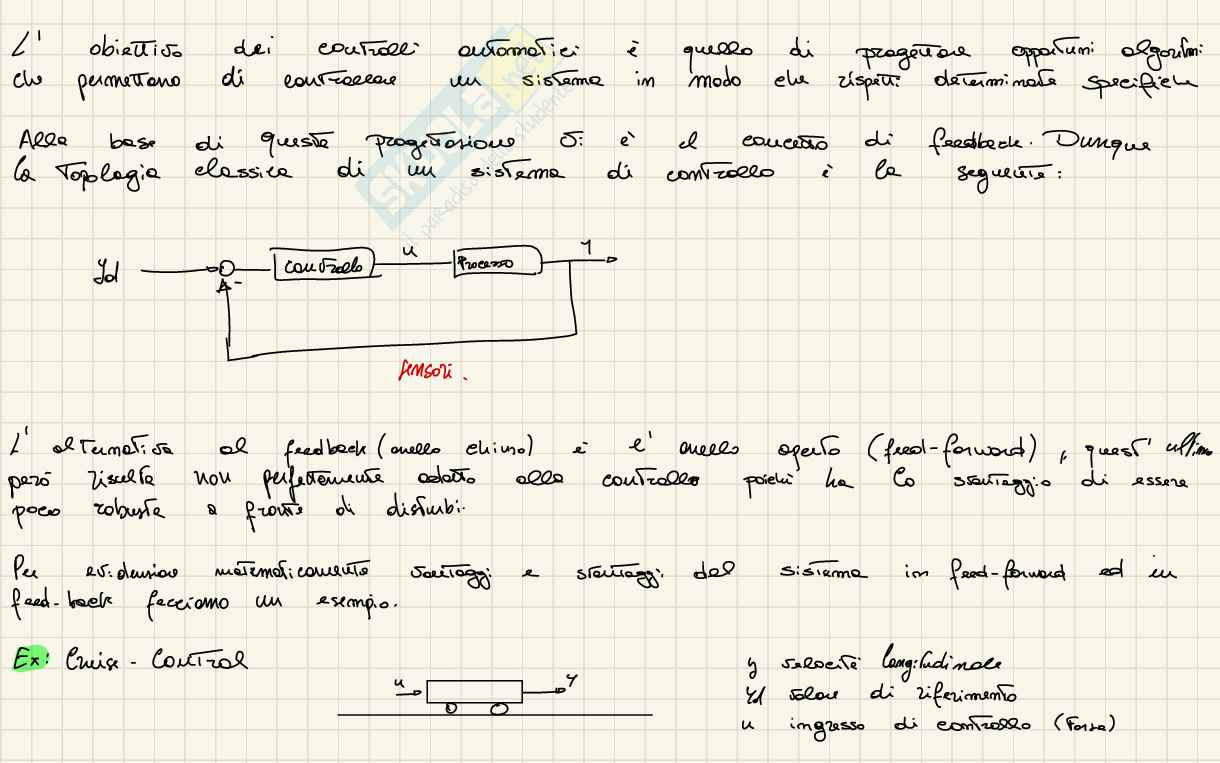 L' obiettivo dei controlli automatici è quello di progettare opportuni algoritmi
che permettano di controllare un sistema in modo che rispetti determinate specifiche
Alla base di questa progettazione vi è il concetto di feedback. Dunque
la topologia classica di un sistema di controllo è la seguente:
yd
-
controllo
u
Processo
y
sensori.
L' alternativa al feedback (anello chiuso) è l' anello aperto (feed-forward), quest' ultimo
però risulta non perfettamente adatto alla controllo poichè ha lo svantaggio di essere
poco robusta a fronte di disturbi.
Per evidenziare matematicamente vantaggi e svantaggi del sistema in feed-forward ed in
feed-back facciamo un esempio.
Ex: Cruise - Control
u
y
y velocità longitudinale
yd valore di riferimento
u ingresso di controllo (Forza)
SKUOLA.net
il paradiso dello studente